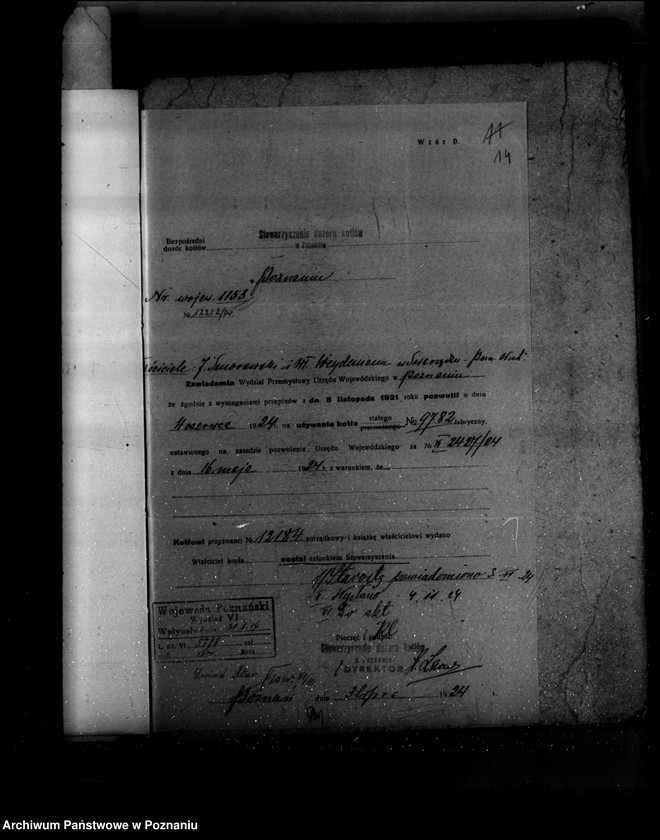 Wzór D.
14
Stowarzyszenie dozoru kotłów
w Poznaniu
Bezpośredni
dozór kotłów
w Poznaniu
Nr. wojew. 1153
№ 12202/24
J. Smorawski i Wł. Weydemann w
Zawiadamia Wydział Przemysłowy Urzędu Wojewódzkiego w Poznaniu
że zgodnie z wymaganiami przepisów z dn. 8 listopada 1921 roku pozwolił w dniu
4 czerwca 1924 na używanie kotła stałego № 9782 fabryczny,
ustawionego na zasadzie pozwolenia Urzędu Wojewódzkiego za № VI 2427/24
z dnia 16 maja 1924 r. z warunkiem, że
Kotłowi przyznano № 12184 porządkowy i książkę właścicielowi wydano
Właściciel kotła został członkiem Stowarzyszenia
Starostę zawiadomiono 3. VII 24
Do akt
Wojewoda Poznański
Wydział VI
Wpłynęło dnia
L. dz. VI
zał.
Akta
Pieczęć i podpis:
Stowarzyszenie dozoru kotłów
w Poznaniu
DYREKTOR
Poznań dnia 3 lipca 1924 r.
Archiwum Państwowe w Poznaniu